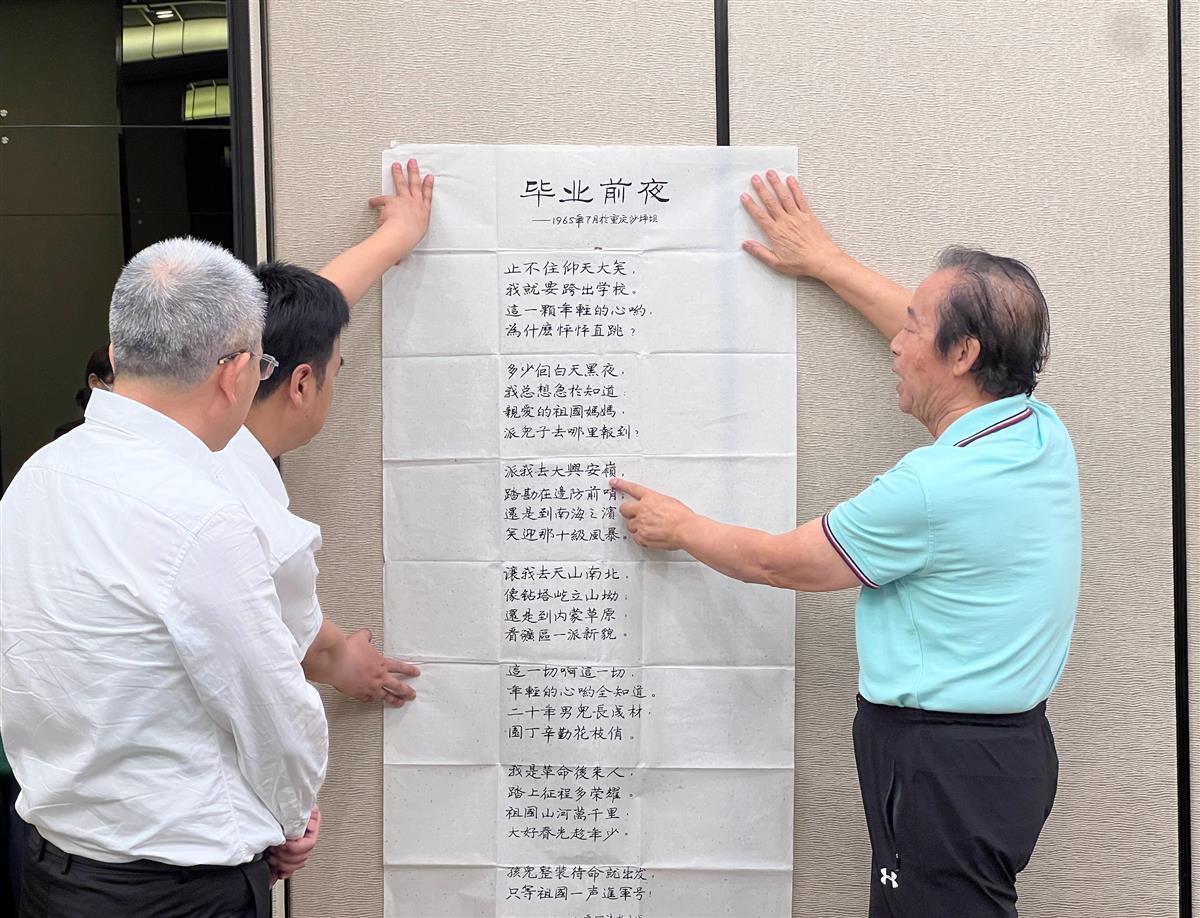 毕业前夜
——1965年7月於重庆沙坪坝
止不住仰天大笑，
我就要跨出学校。
這一顆年輕的心喲，
為什麼怦怦直跳？
多少個白天黑夜，
我总想急於知道：
親爱的祖國媽媽，
派兒子去哪里報到？
派我去大興安嶺，
踏勘在邊防前哨；
還是到南海之濱，
笑迎那十級風暴。
讓我去天山南北，
像鉆塔屹立山坳；
還是到内蒙草原，
看礦區一派新貌。
這一切啊這一切，
年輕的心喲全知道。
二十年男兒長成材，
園丁辛勤花枝俏。
我是革命後来人，
踏上征程多荣耀。
祖國山河萬千里，
大好春光趁年少。
孩兒整装待命就出发，
只等祖國一声進軍号！